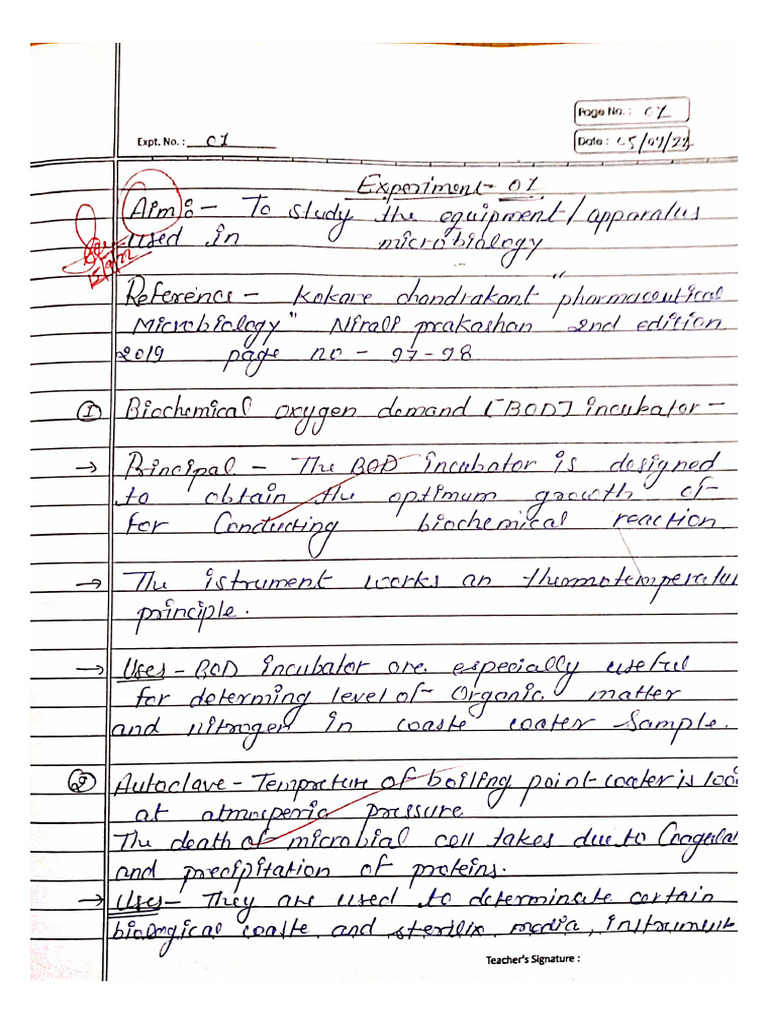 Page No. : 01
Expt. No. : 01
Date : 15/09/22
Experiment - 01
Aim :- To study the equipment/apparatus
used in microbiology
15/9/22
Reference - Kokare chandrakant "pharmaceutical
Microbiology" Nirali prakashan 2nd edition
2019 page no - 97-98
① Biochemical oxygen demand [BOD] incubator -
→ Principal - The BOD incubator is designed
to obtain the optimum growth of
for Conducting biochemical reaction
→ The istrument works an thermotemperatur
principle.
→ Uses - BOD incubator are especially useful
for determing level of Organic matter
and nitrogen in waste water sample.
② Autoclave - Temprcture of boiling point water is 100
at atmosperic pressure
The death of microbial cell takes due to Coagula
and precipitation of proteins.
→ Uses - They are used to determinate certain
biological waste and sterilix media, instrument
Teacher's Signature :